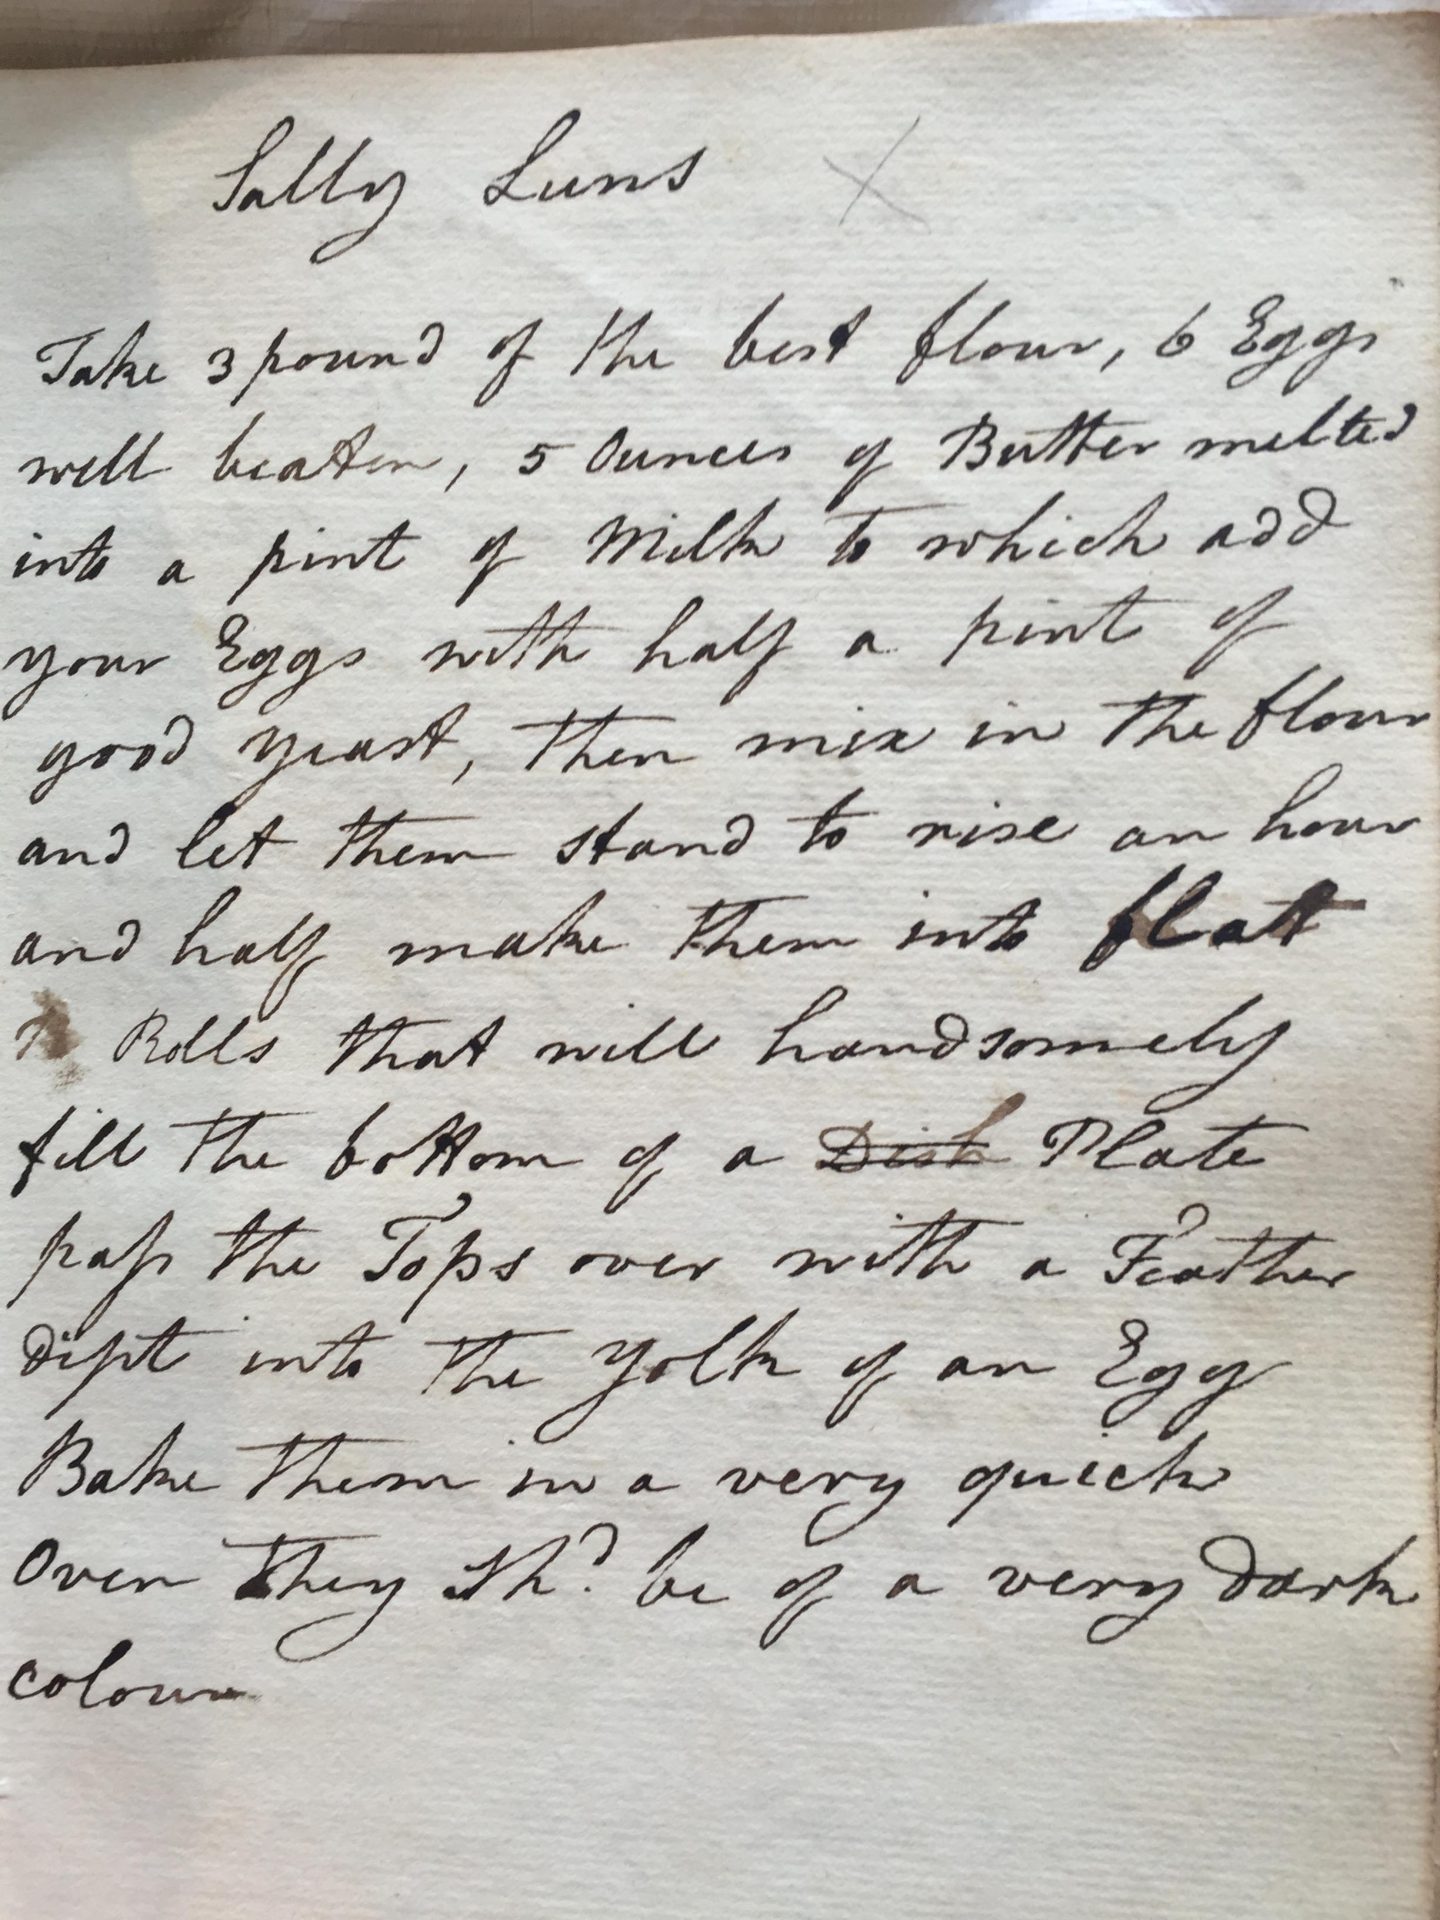 Sally Luns
Take 3 pound of the best flour, 6 Eggs
well beaten, 5 Ounces of Butter melted
into a pint of Milk to which add
your Eggs with half a pint of
good yeast, then mix in the flour
and let them stand to rise an hour
and half make them into flat
Rolls that will handsomely
fill the bottom of a Dish Plate
paſs the Tops over with a Feather
dipt into the yolk of an Egg
Bake them in a very quick
Oven they Shd. be of a very dark
colour